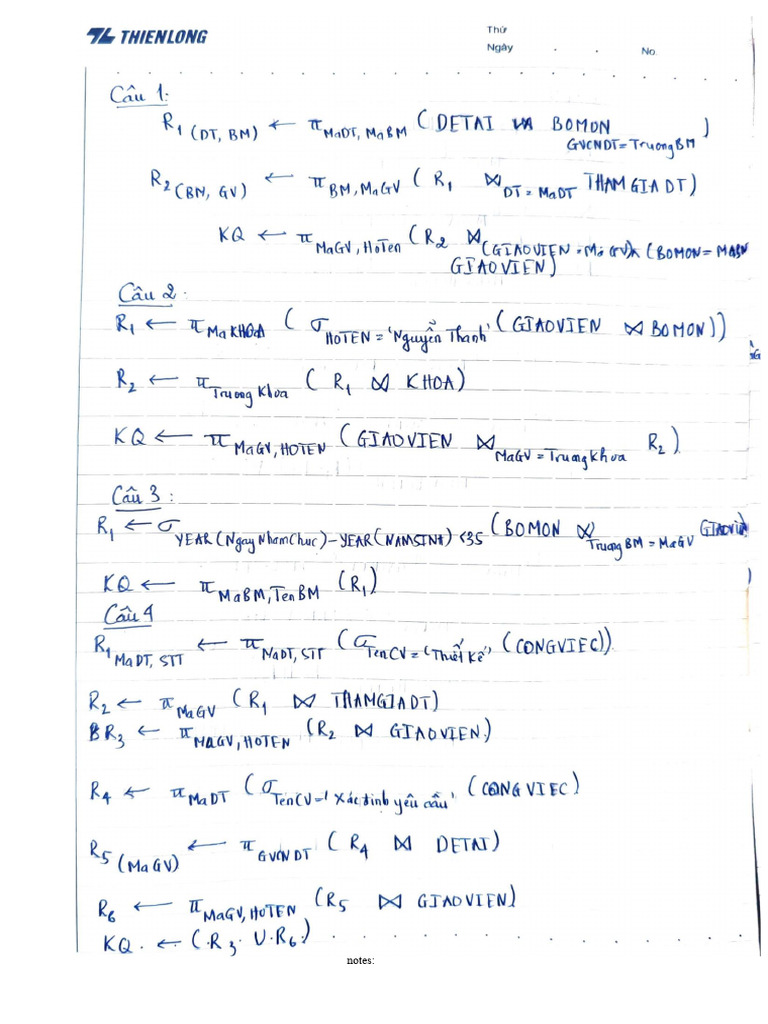 THIENLONG
Thứ
Ngày . . No.
Câu 1:
R1 (DT, BM) ← π MaDT, MaBM ( DETAI ⋈ BOMON )
GVCNDT = TruongBM
R2 (BM, GV) ← π BM, MaGV ( R1 ⋈ DT = MaDT THAMGIADT)
KQ ← π MaGV, HoTen (R2 ⋈ (GIAOVIEN = Ma GV) ∧ (BOMON = MABM
GIAOVIEN)
Câu 2:
R1 ← π MaKHOA ( σ HOTEN = 'Nguyễn Thanh' (GIAOVIEN ⋈ BOMON))
R2 ← π Truong Khoa ( R1 ⋈ KHOA)
KQ ← π MaGV, HOTEN (GIAOVIEN ⋈ MaGV = Truong Khoa R2)
Câu 3:
R1 ← σ YEAR(NgayNhamChuc) - YEAR(NAMSINH) < 35 (BOMON ⋈ TruongBM = MaGV GIAOVIEN
)
KQ ← π MaBM, TenBM (R1)
Câu 4
R1 MaDT, STT ← π MaDT, STT (σ TenCV = 'Thiết Kế' (CONGVIEC))
R2 ← π MaGV (R1 ⋈ THAMGIADT)
R3 ← π MAGV, HOTEN (R2 ⋈ GIAOVIEN)
R4 ← π MaDT (σ TenCV = 'Xác định yêu cầu' (CONGVIEC)
R5 (MaGV) ← π GVCNDT ( R4 ⋈ DETAI)
R6 ← π MaGV, HOTEN (R5 ⋈ GIAOVIEN)
KQ ← (R3 ∪ R6)
notes: